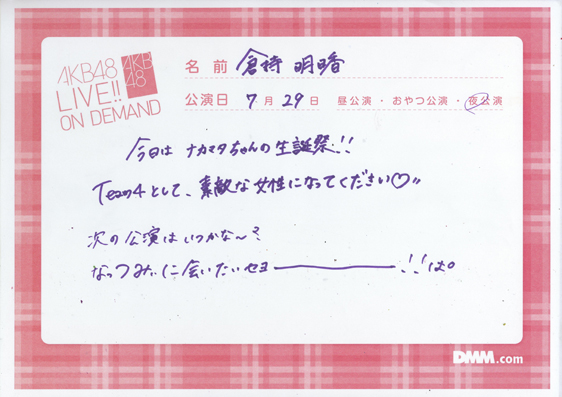 AKB48
LIVE!!
ON DEMAND
AKB
48
名前 倉持 明日香
公演日 7月29日 昼公演・おやつ公演・夜公演
今日は ナカマタちゃんの生誕祭!!
Team4として、素敵な女性になってください♡〃
次の公演はいつかな〜?
なっつみぃに会いたいせヨ────!!は。
DMM.com